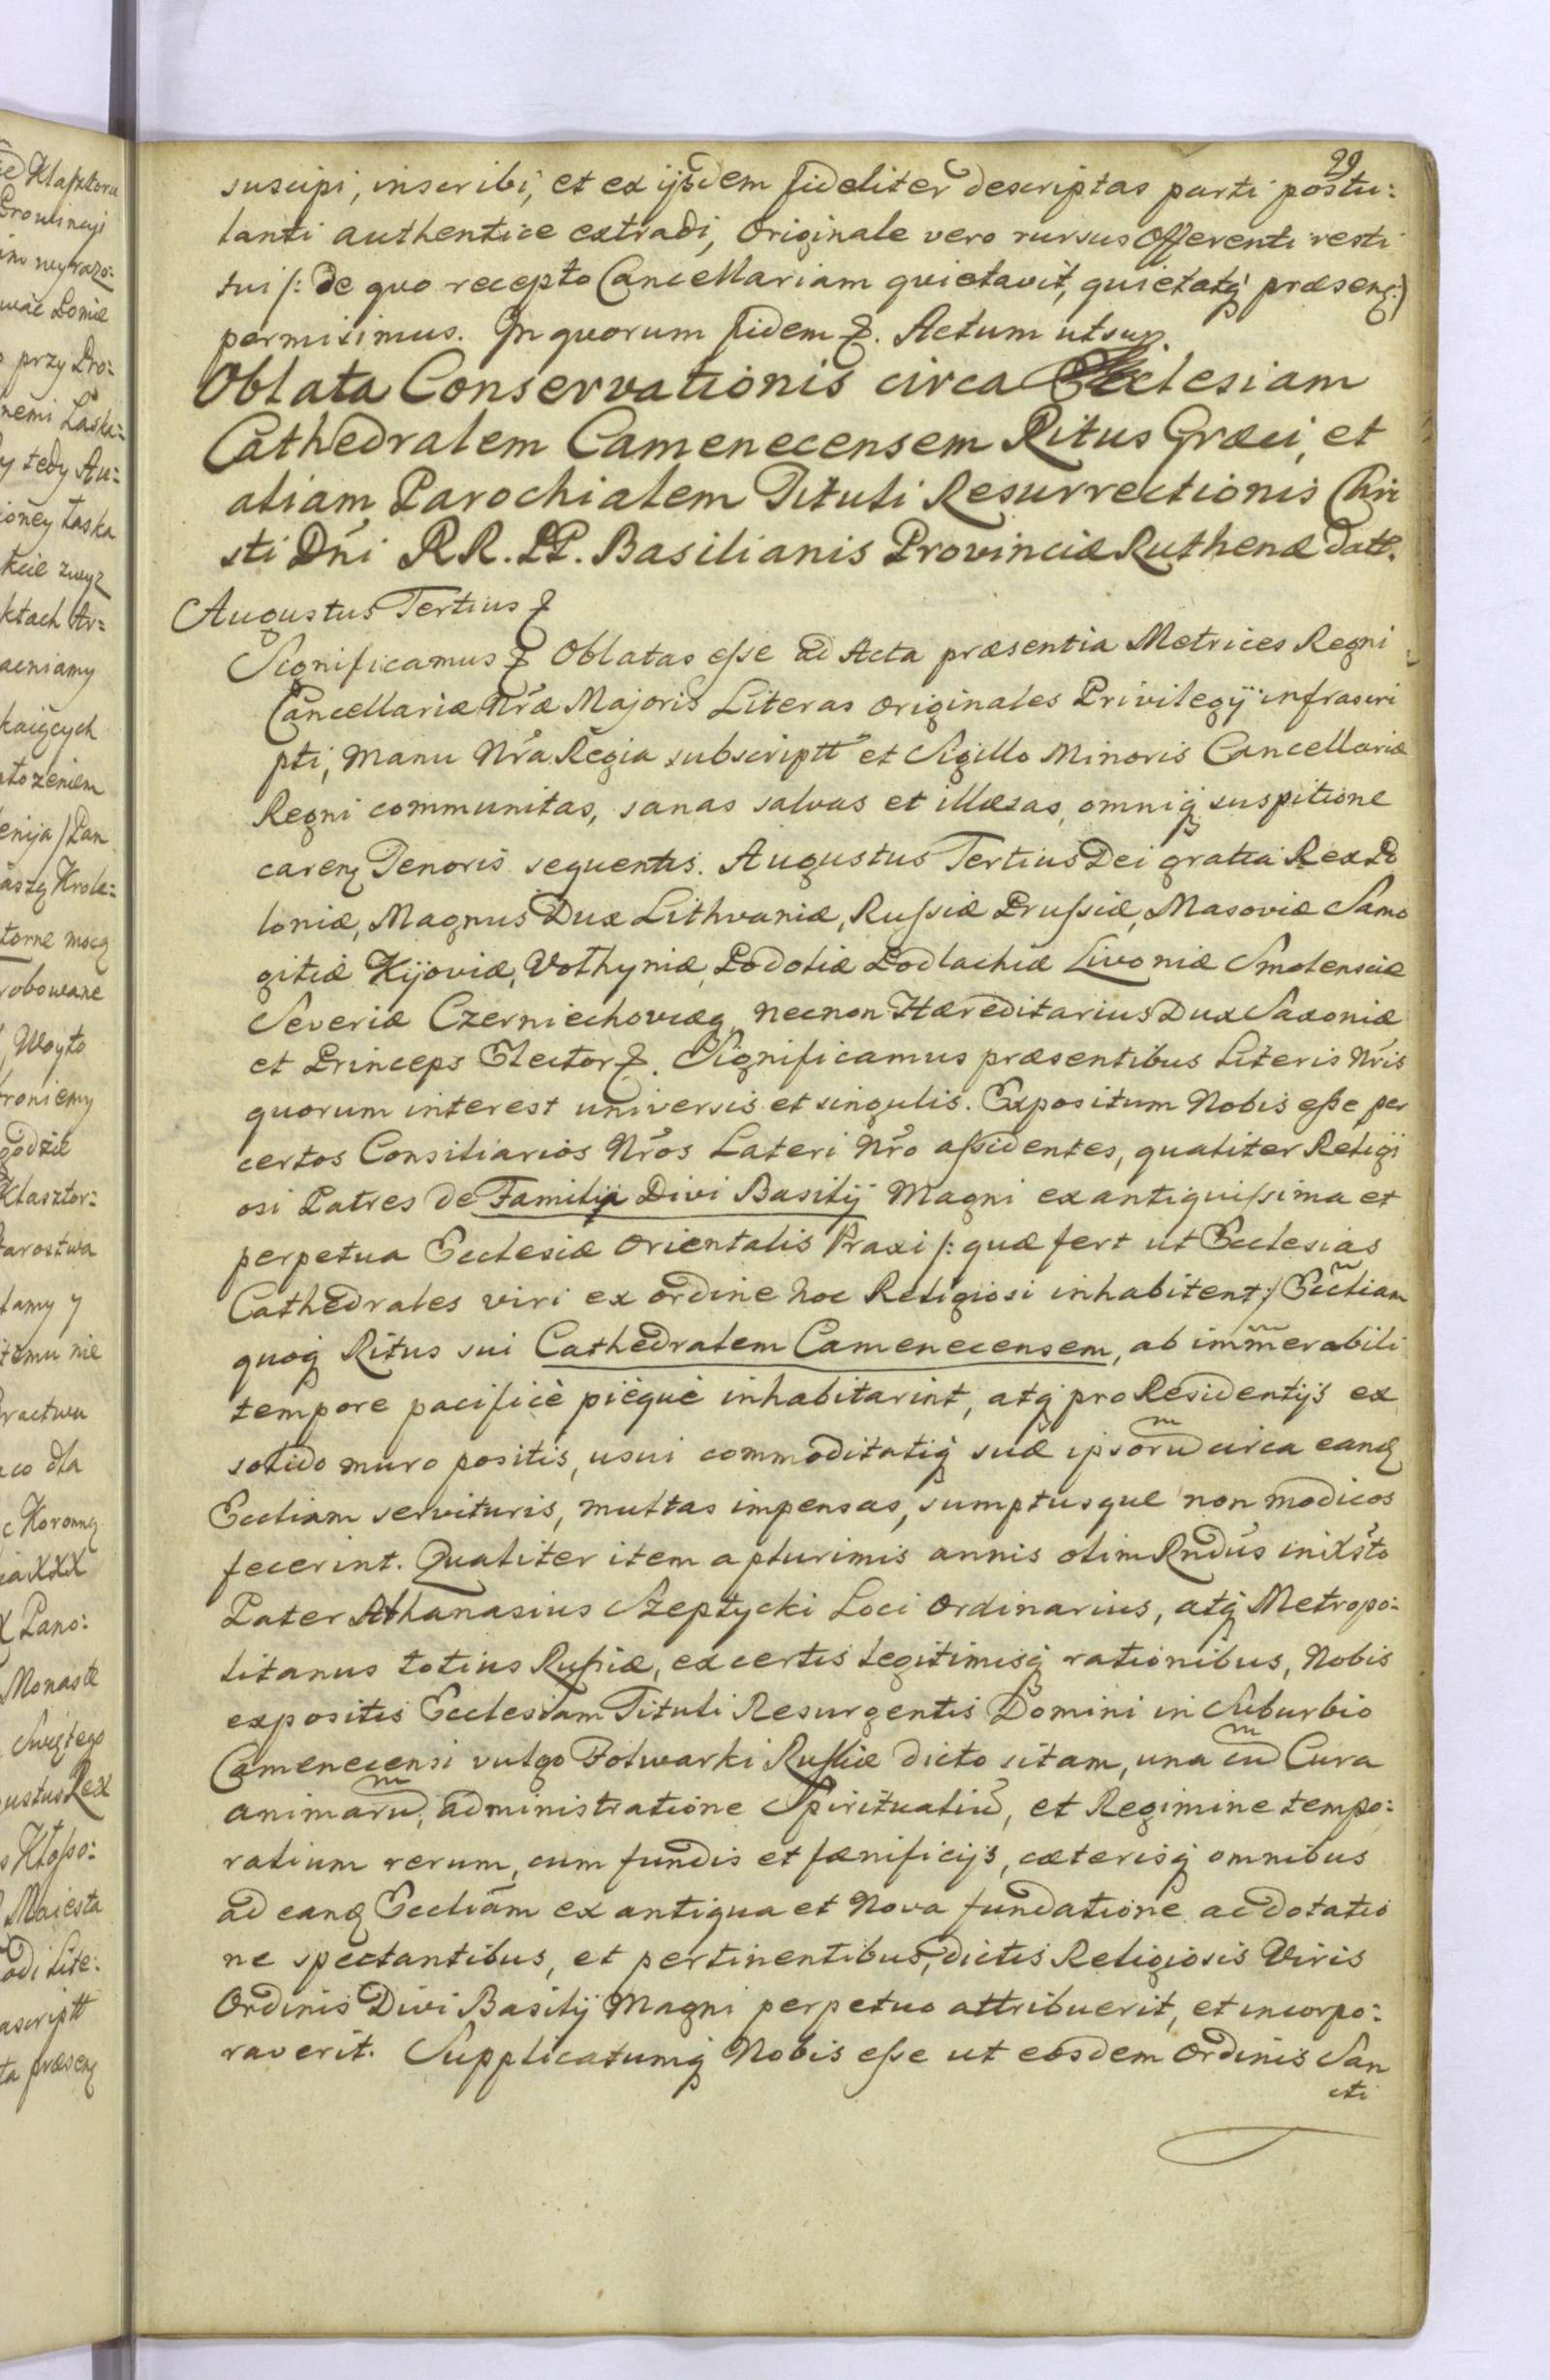 29
suscipi, inscribi, et ex ijsdem fideliter descriptas parti postu:
lanti authentice extradi, Originale vero rursus Offerenti resti
tui /: de quo recepto Cancellariam quietavit, quietatq́ præsenq :/
permisimus. In quorum fidem &. Actum ut sup.
Oblata Conservationis circa Ecclesiam
Cathedralem Camenecensem Ritus Græci, et
aliam Parochialem Tituli Resurrectionis Chri
sti Dńi RR. PP. Basilianis Provinciæ Ruthenæ datt.
Augustus Tertius &
Significamus & Oblatas eſse ad Acta præsentia Metrices Regni
Cancellariæ Nŕæ Majoris Literas Originales Privilegij infrascri
pti, Manu Nŕa Regia subscriptt et Sigillo Minoris Cancellariæ
Regni communitas, sanas salvas et illæsas, omniq́ suspitione
carenq Tenoris sequentis. Augustus Tertius Dei gratia Rex Po
loniæ, Magnus Dux Lithvaniæ, Ruſsiæ Pruſsiæ, Masoviæ Samo
gitiæ Kijoviæ, Volhyniæ, Podoliæ Podlachiæ Livoniæ Smolensciæ
Severiæ Czerniechoviæq necnon Hæreditarius Dux Saxoniæ
et Princeps Elector &. Significamus præsentibus Literis Nŕis
quorum interest universis et singulis. Expositum Nobis eſse per
certos Consiliarios Nŕos Lateri Nŕo aſsidentes, qualiter Religi
osi Patres de Familia Divi Basilij Magni ex antiquiſsima et
perpetua Ecclesiæ Orientalis Praxi /: quæ fert ut Ecclesias
Cathedrales viri ex ordine hoc Religiosi inhabitent :/ Eccliam
quoq́ Ritus sui Cathedralem Camenecensem, ab imm̃erabili
tempore pacificè piéquè inhabitarint, atq́ pro Residentijs ex
solido muro positis, usui commoditatiq́ suæ ipsorũ circa eanq
Eccliam servituris, multas impensas, sumptusque non modicos
fecerint. Qualiter item a plurimis annis olim Rńdus in Xsto
Pater Athanasius Szeptycki Loci Ordinarius, atq́ Metropo:
litanus totius Ruſsiæ, ex certis legitimisq́ rationibus, Nobis
expositis Ecclesiam Tituli Resurgentis Domini in Suburbio
Camenecensi vulgo Folwarki Ruſkie dicto sitam, una cũ Cura
animarũ, administratione Spiritualiũ, et Regimine tempo:
ralium rerum, cum fundis et fænificijs, cæterisq́ omnibus
ad eanq Eccliam ex antiqua et Nova fundatione ac dotatio
ne spectantibus, et pertinentibus, dictis Religiosis Viris
Ordinis Divi Basilij Magni perpetuo attribuerit, et incorpo:
raverit. Supplicatumq́ Nobis eſse ut eosdem Ordinis San
cti